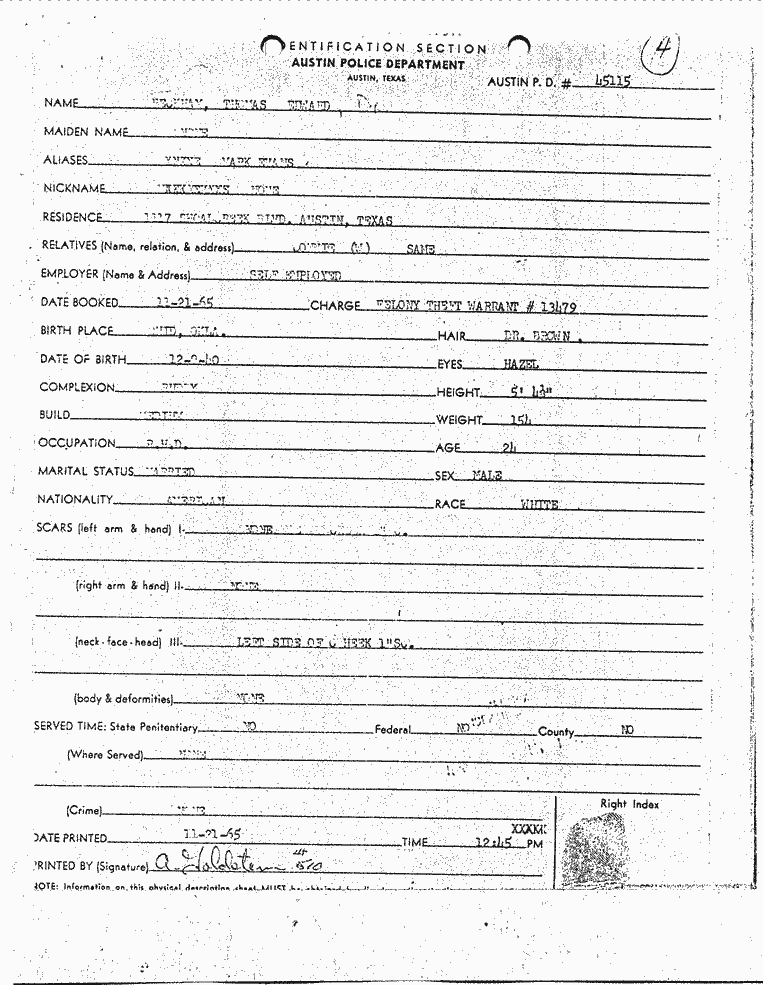 4
ENTIFICATION SECTION
AUSTIN POLICE DEPARTMENT
AUSTIN, TEXAS
AUSTIN P. D. # 45115
NAME THOMAS EDWARD,
MAIDEN NAME NONE
ALIASES MARK EVANS
NICKNAME NONE
RESIDENCE BLVD. AUSTIN, TEXAS
RELATIVES (Name, relation, & address) (W) SAME
EMPLOYER (Name & Address) SELF EMPLOYED
DATE BOOKED 11-21-65 CHARGE FELONY THEFT WARRANT # 13479
BIRTH PLACE OKLA.
HAIR DR. BROWN.
DATE OF BIRTH
EYES HAZEL
COMPLEXION RUDDY
HEIGHT 5' 4¾"
BUILD MEDIUM
WEIGHT 154
OCCUPATION
AGE 24
MARITAL STATUS MARRIED
SEX MALE
NATIONALITY AMERICAN
RACE WHITE
SCARS (left arm & hand) I- NONE
(right arm & hand) II- NONE
(neck-face-head) III- LEFT SIDE OF C HEEK 1"Sc.
(body & deformities) NONE
SERVED TIME: State Penitentiary NO Federal NO County NO
(Where Served) NONE
(Crime) NONE
Right Index
DATE PRINTED 11-21-65 TIME 12:45 PM
PRINTED BY (Signature) A. Goldstein #510
NOTE: Information on this physical description sheet MUST be obtained